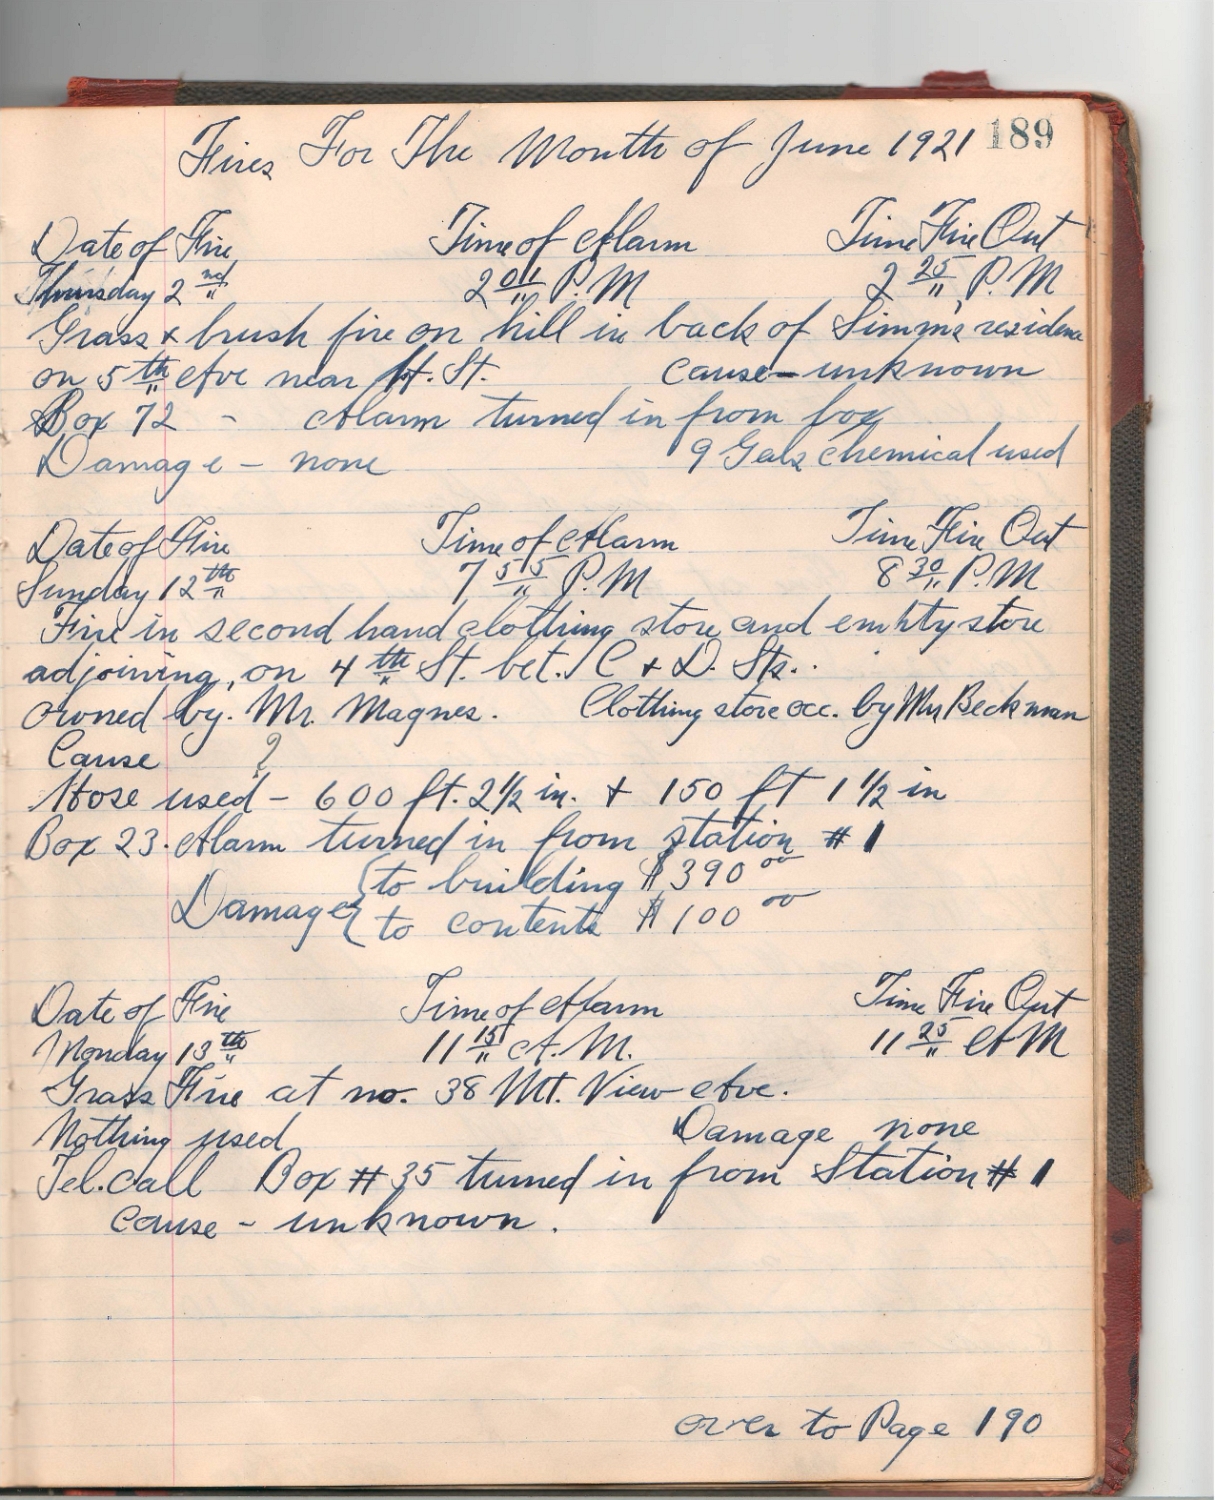 Fires For The Month of June 1921 189
Date of Fire Time of Alarm Time Fire Out
Thursday 2nd 2 01 P.M 2 25 P.M
Grass & brush fire on hill in back of Simms residence
on 5th Ave near H. St. cause – unknown
Box 72 - Alarm turned in from box
Damage – none 9 Gals chemical used
Date of Fire Time of Alarm Time Fire Out
Sunday 12th 7 55 P.M 8 30 P.M
Fire in second hand clothing store and emhty store
adjoining, on 4th St. bet. C & D. Sts.
owned by. Mr. Magnes. Clothing store occ. by Mr Beckman
Cause ?
Hose used – 600 ft. 2 1/2 in. + 150 ft 1 1/2 in
Box 23. Alarm turned in from station #1
Damage { to building $390 00
{ to contents $100 00
Date of Fire Time of Alarm Time Fire Out
Monday 13th 11 15 A.M. 11 25 A M
Grass Fire at no. 38 Mt. View Ave.
Nothing used Damage none
Tel. Call Box # 35 turned in from Station # 1
cause – unknown.
over to Page 190